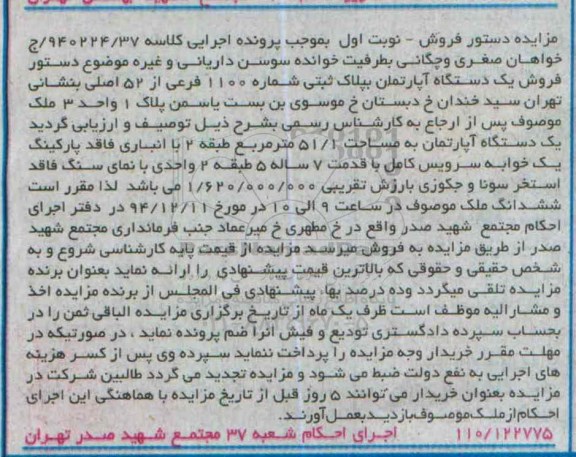 مزایده دستور فروش - نوبت اول بموجب پرونده اجرایی کلاسه ۹۴۰۲۲۴/۳۷/ج
خواهان صغری وچگانی بطرفیت خوانده سوسن داریانی و غیره موضوع دستور
فروش یک دستگاه آپارتمان بپلاک ثبتی شماره ۱۱۰۰ فرعی از ۵۲ اصلی بنشانی
تهران سید خندان خ دبستان خ موسوی بن بست یاسمن پلاک ۱ واحد ۳ ملک
موصوف پس از ارجاع به کارشناس رسمی بشرح ذیل توصیف و ارزیابی گردید
یک دستگاه آپارتمان به مساحت ۵۱/۱ مترمربع طبقه ۲ با انباری فاقد پارکینگ
یک خوابه سرویس کامل با قدمت ۷ ساله ۵ طبقه ۲ واحدی با نمای سنگ فاقد
استخر سونا و جکوزی بارزش تقریبی ۱/۶۲۰/۰۰۰/۰۰۰ می باشد لذا مقرر است
ششدانگ ملک موصوف در ساعت ۹ الی ۱۰ در مورخ ۹۴/۱۲/۱۱ در دفتر اجرای
احکام مجتمع شهید صدر واقع در خ مطهری خ میرعماد جنب فرمانداری مجتمع شهید
صدر از طریق مزایده به فروش میرسد مزایده از قیمت پایه کارشناسی شروع و به
شخص حقیقی و حقوقی که بالاترین قیمت پیشنهادی را ارائه نماید بعنوان برنده
مزایده تلقی میگردد وده درصد بهاء پیشنهادی فی المجلس از برنده مزایده اخذ
و مشارالیه موظف است ظرف یک ماه از تاریخ برگزاری مزایده الباقی ثمن را در
بحساب سپرده دادگستری تودیع و فیش آنرا ضم پرونده نماید ، در صورتیکه در
مهلت مقرر خریدار وجه مزایده را پرداخت ننماید سپرده وی پس از کسر هزینه
های اجرایی به نفع دولت ضبط می شود و مزایده تجدید می گردد طالبین شرکت در
مزایده بعنوان خریدار می توانند ۵ روز قبل از تاریخ مزایده با هماهنگی این اجرای
احکام از ملک موصوف بازدید بعمل آورند.
۱۱۰/۱۲۲۷۷۵ اجرای احکام شعبه ۳۷ مجتمع شهید صدر تهران